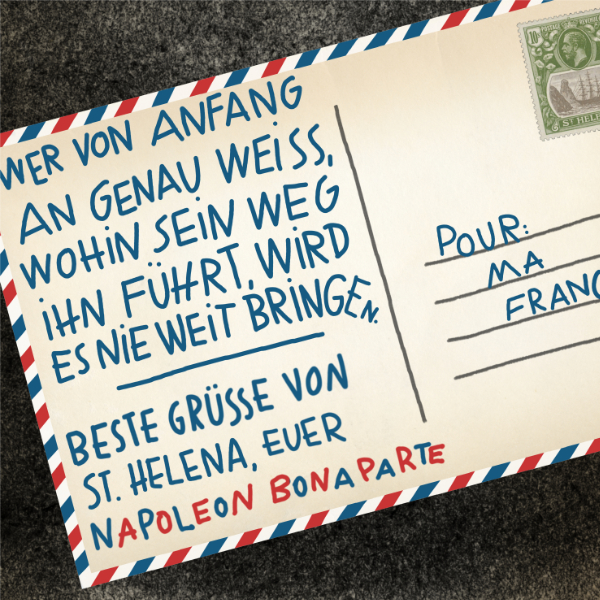 WER VON ANFANG
AN GENAU WEISS,
WOHIN SEIN WEG
IHN FÜHRT, WIRD
ES NIE WEIT BRINGEN.
BESTE GRÜSSE VON
ST. HELENA, EUER
NAPOLEON BONAPARTE
POUR:
MA
FRANC
ST HELE